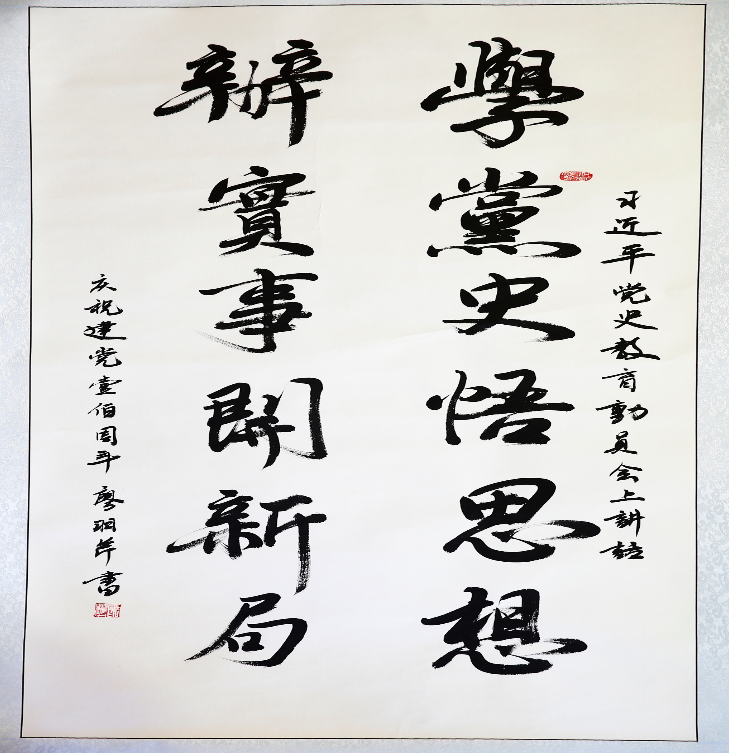 習近平党史教育動員会上講話
學黨史悟思想
辦實事開新局
庆祝建党壹佰周年 廖珮萍書